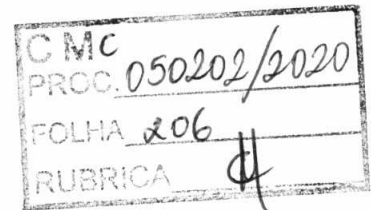 CMC
PROC. 050202/2020
FOLHA 206
RUBRICA